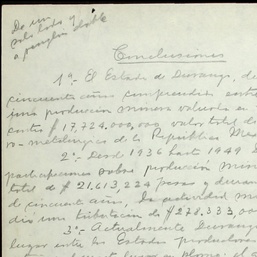 De un
solo lado y
a renglón doble
Conclusiones
1ª.- El Estado de Durango, de
cincuenta años comprendidos entre
una producción minera valuada e
contó $ 17,724.000,000 valor total d
ro-metalúrgica de la República Mex
2ª.- Desde 1936 hasta 1949 D
participaciones sobre producción min
total de $ 21.613,224 pesos y duran
de cincuenta años, la actividad m
dió un tributación de $ 278.333,00
3ª.- Actualmente Durango
lugar entre los Estados productore